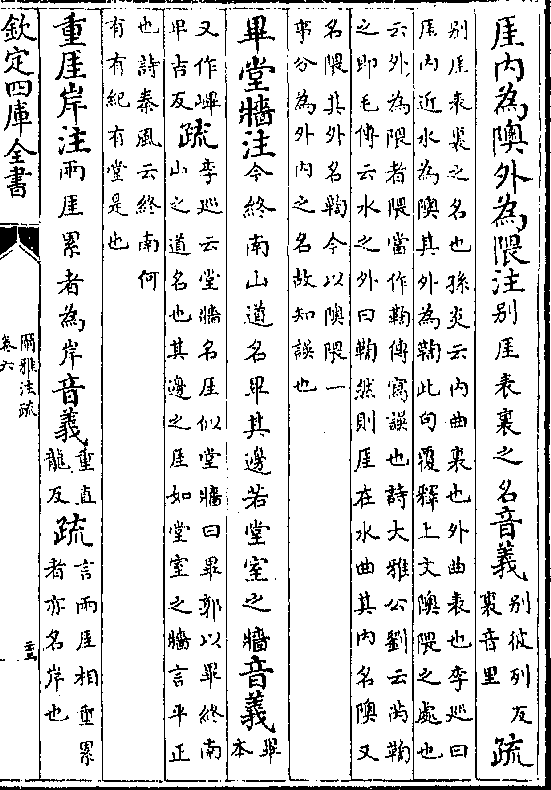 厓内為隩外為隈注别厓表裏之名音義别彼列反
裏音里疏
别厓表裏之名也孫炎云内曲裏也外曲表也李廵曰
厓内近水為隩其外為鞫此句覆釋上文隩隈之處也
云外為隈者隈當作鞫傳寫誤也詩大雅公劉云芮鞫
之即毛傳云水之外曰鞫然則厓在水曲其内名隩又
名隈其外名鞫今以隩隈一
事分為外内之名故知誤也
畢堂牆注今終南山道名畢其邊若堂室之牆音義畢
本
又作㻫
卑吉反疏李廵云堂牆名厓似堂牆曰畢郭以畢終南
山之道名也其邊之厓如堂室之牆言平正
也詩秦風云終南何
有有紀有堂是也
重厓岸注兩厓累者為岸音義重直
龍反疏言兩厓相重累
者亦名岸也
欽定四庫全書
爾雅注疏
卷六